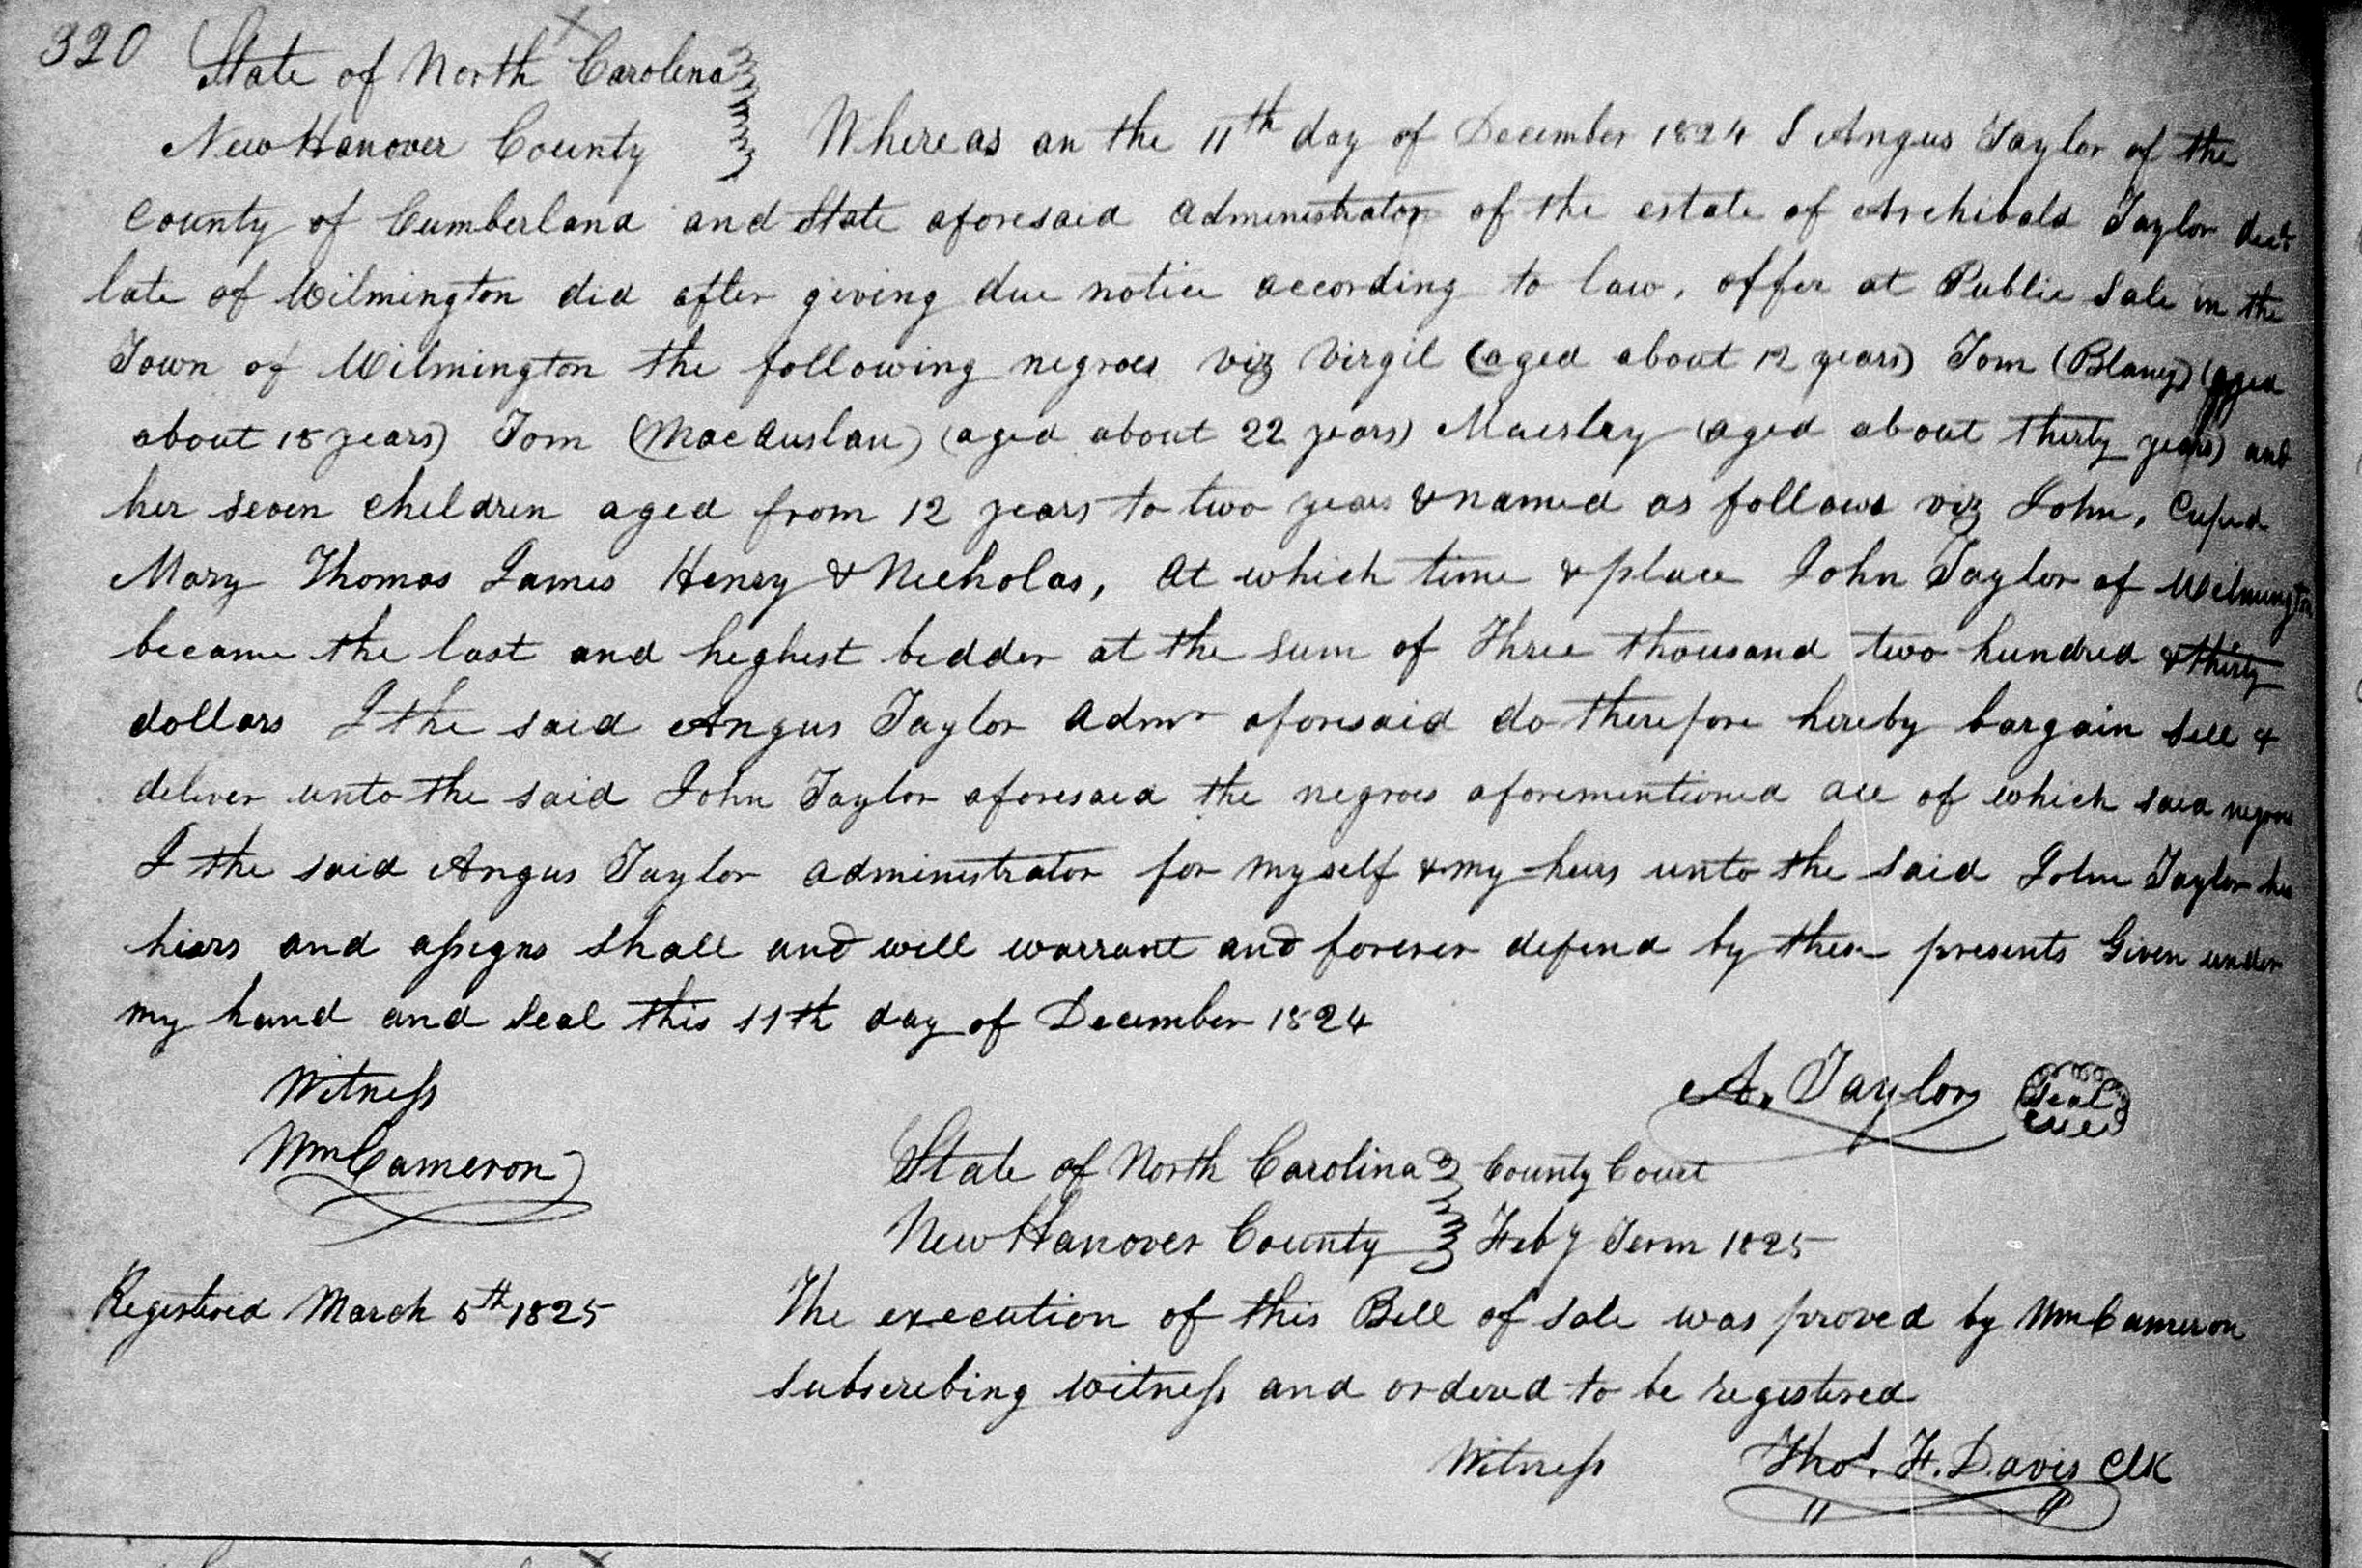 320
State of North Carolina
New Hanover County Whereas on the 11th day of December 1824 I Angus Taylor of the
County of Cumberland and State aforesaid administrator of the estate of Archibald Taylor decd
late of Wilmington did after giving due notice according to law, offer at Public Sale in the
Town of Wilmington the following negroes viz Virgil (aged about 12 years) Tom (Blaney) (aged
about 18 years) Tom (MacAuslan) (aged about 22 years) (aged about thirty years) and
her seven children aged from 12 years to two years & named as follows viz John, Cupid
Mary Thomas James Henry & Nicholas, at which time & place John Taylor of Wilmington
became the last and highest bidder at the sum of Three thousand two hundred & thirty
dollars I the said Angus Taylor Admr aforesaid do therefore hereby bargain sell &
deliver unto the said John Taylor aforesaid the negroes aforementioned all of which said negroes
I the said Angus Taylor administrator for myself & my heirs unto the said John Taylor his
hiars and assigns shall and will warrant and forever defend by these presents Given under
my hand and Seal this 11th day of December 1824
Witness
A. Taylor Seal
Wm Cameron
State of North Carolina County Court
New Hanover County Feby Term 1825
Registered March 5th 1825
The execution of this Bill of sale was proved by Wm Cameron
subscribing witness and ordered to be registered
Witness Thos. F. Davis Clk